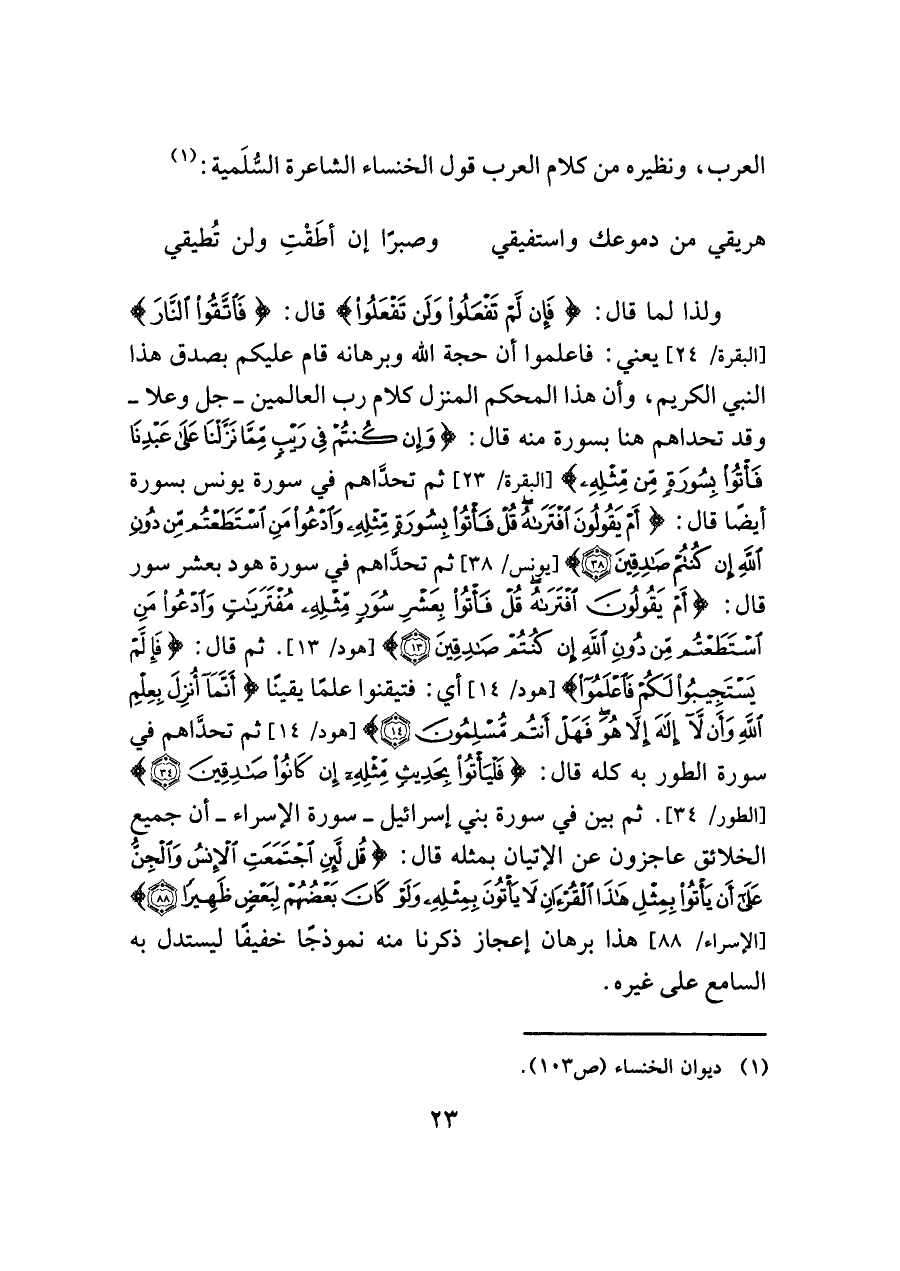 العرب، ونظيره من كلام العرب قول الخنساء الشاعرة السُّلَمية:(١)
هريقي من دموعك واستفيقي وصبرًا إن أطَقْتِ ولن تُطيقي
ولذا لما قال: ﴿ فَإِن لَّمْ تَفْعَلُوا۟ وَلَن تَفْعَلُوا۟﴾ قال: ﴿ فَٱتَّقُوا۟ ٱلنَّارَ ﴾
[البقرة/ ٢٤] يعني: فاعلموا أن حجة الله وبرهانه قام عليكم بصدق هذا
النبي الكريم، وأن هذا المحكم المنزل كلام رب العالمين ـ جل وعلا ـ
وقد تحداهم هنا بسورة منه قال: ﴿ وَإِن كُنتُمْ فِى رَيْبٍ مِّمَّا نَزَّلْنَا عَلَىٰ عَبْدِنَا
فَأْتُوا۟ بِسُورَةٍ مِّن مِّثْلِهِۦ﴾ [البقرة/ ٢٣] ثم تحدَّاهم في سورة يونس بسورة
أيضًا قال: ﴿ أَمْ يَقُولُونَ ٱفْتَرَىٰهُ ۖ قُلْ فَأْتُوا۟ بِسُورَةٍ مِّثْلِهِۦ وَٱدْعُوا۟ مَنِ ٱسْتَطَعْتُم مِّن دُونِ
ٱللَّهِ إِن كُنتُمْ صَٰدِقِينَ ﴿٣٨﴾﴾ [يونس/ ٣٨] ثم تحدَّاهم في سورة هود بعشر سور
قال: ﴿أَمْ يَقُولُونَ ٱفْتَرَىٰهُ ۖ قُلْ فَأْتُوا۟ بِعَشْرِ سُوَرٍ مِّثْلِهِۦ مُفْتَرَيَٰتٍ وَٱدْعُوا۟ مَنِ
ٱسْتَطَعْتُم مِّن دُونِ ٱللَّهِ إِن كُنتُمْ صَٰدِقِينَ ﴿١٣﴾﴾ [هود/ ١٣]. ثم قال: ﴿ فَإِلَّمْ
يَسْتَجِيبُوا۟ لَكُمْ فَٱعْلَمُوٓا۟﴾ [هود/ ١٤] أي: فتيقنوا علمًا يقينًا ﴿ أَنَّمَآ أُنزِلَ بِعِلْمِ
ٱللَّهِ وَأَن لَّآ إِلَٰهَ إِلَّا هُوَ ۖ فَهَلْ أَنتُم مُّسْلِمُونَ ﴿١٤﴾﴾ [هود/ ١٤] ثم تحدَّاهم في
سورة الطور به كله قال: ﴿ فَلْيَأْتُوا۟ بِحَدِيثٍ مِّثْلِهِۦٓ إِن كَانُوا۟ صَٰدِقِينَ ﴿٣٤﴾﴾
[الطور/ ٣٤]. ثم بين في سورة بني إسرائيل ـ سورة الإسراء ـ أن جميع
الخلائق عاجزون عن الإتيان بمثله قال: ﴿ قُل لَّئِنِ ٱجْتَمَعَتِ ٱلْإِنسُ وَٱلْجِنُّ
عَلَىٰٓ أَن يَأْتُوا۟ بِمِثْلِ هَٰذَا ٱلْقُرْءَانِ لَا يَأْتُونَ بِمِثْلِهِۦ وَلَوْ كَانَ بَعْضُهُمْ لِبَعْضٍ ظَهِيرًا ﴿٨٨﴾﴾
[الإسراء/ ٨٨] هذا برهان إعجاز ذكرنا منه نموذجًا خفيفًا ليستدل به
السامع على غيره.
(١) ديوان الخنساء (ص١٠٣).
٢٣